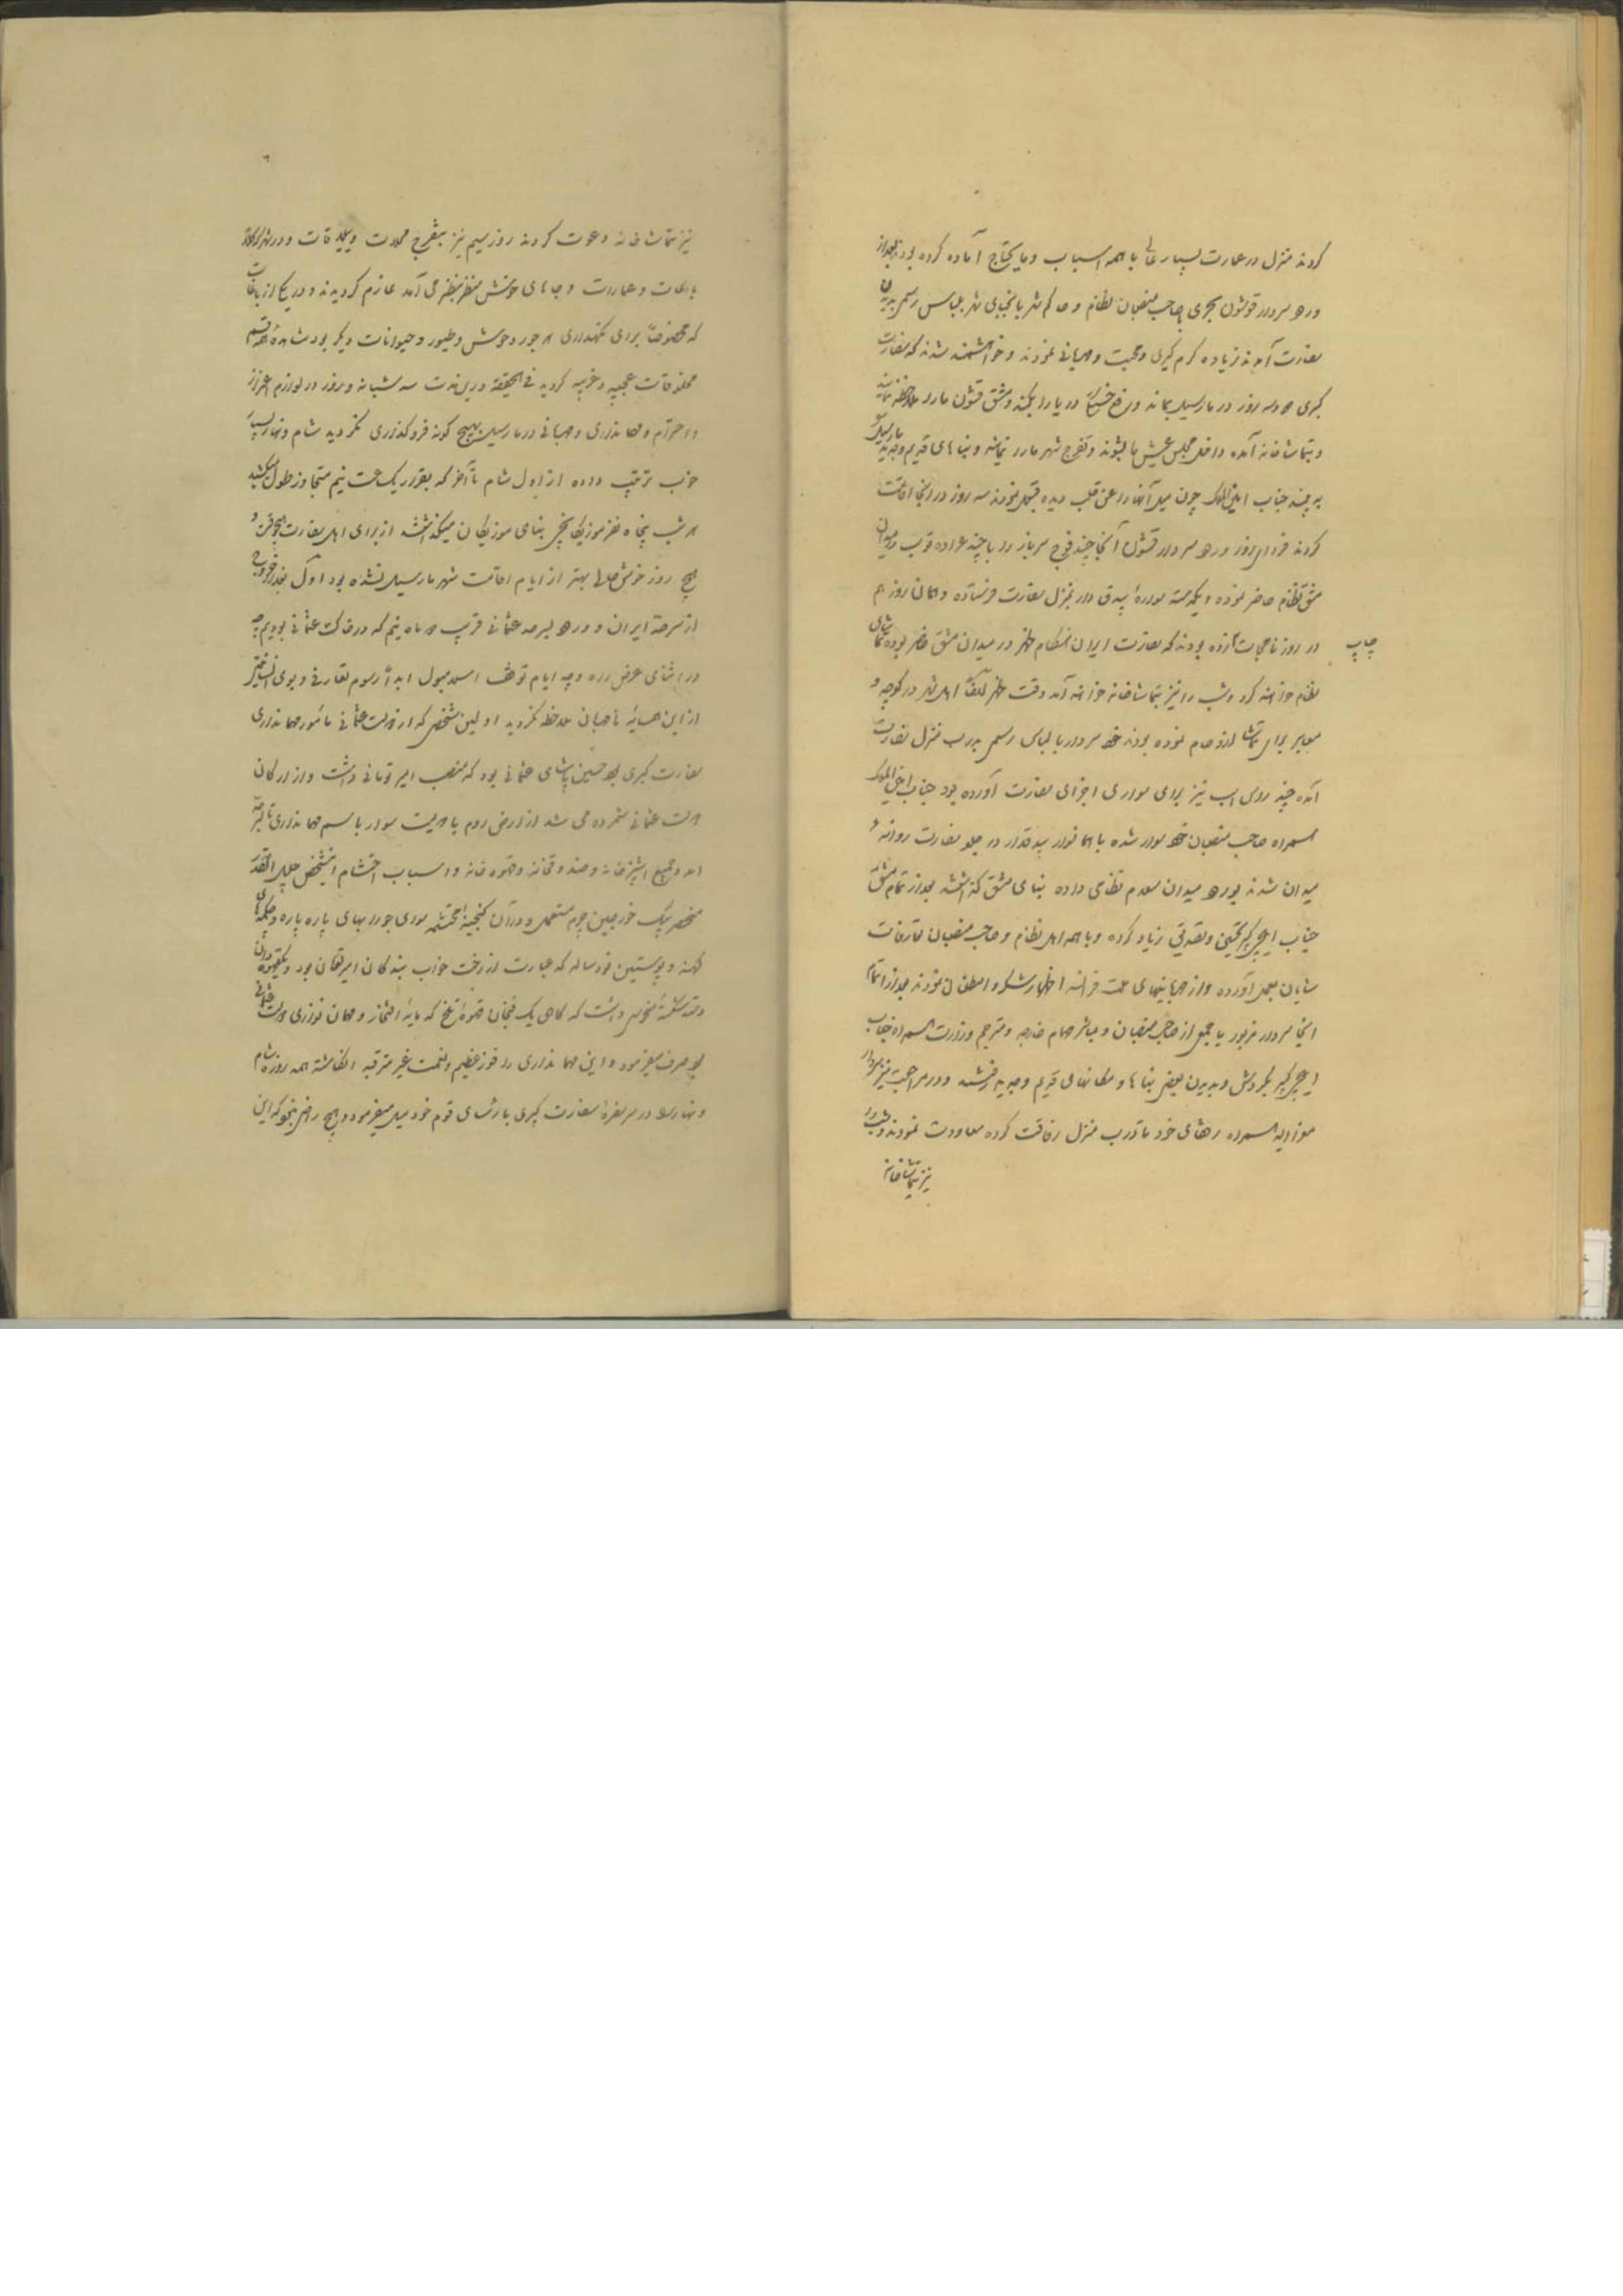 کردند منزل در عمارت بسیار عالی با همه اسباب و مایحتاج آماده کرده بودند بعد از
ورود سردار قوشون بحری با صاحب منصبان نظام و حاکم شهر با نجبای شهر بلباس رسمی بدیدن
سفارت آمدند زیاده گرم گیری و محبت و مهربانی نمودند و خواهشمند شدند که سفارت
کبری دو سه روز در مارسیل بماند و رفع خستگی دریا را بکند و مشق قشون ما را ملاحظه نمایند
و بتماشاخانه آمده داخل مجلس عیش ما بشوند و تفرج شهر ما را نمایند و بناهای قدیم و جدید مارسیل
به بینند جناب امین الملک چون میل آنها را از قلب دیده قبول نمودند سه روز در آنجا اقامت
کردند فردای روز ورود سردار قشون آنجا چند فوج سرباز را با چند عراده توپ در میدان
مشق نظام حاضر نموده و یکدسته سواره بیدق دار بمنزل سفارت فرستاده و همان روز هم
در روزنامجات زده بودند که سفارت ایران هنگام ظهر در میدان مشق حاضر بوده تماشای
چاپ
نظام خواهند کرد و شب را نیز بتماشاخانه خواهند آمد وقت ظهر اهل شهر در کوچه و
معابر برای تماشا ازدحام نموده بودند خود سردار با لباس رسمی بدرب منزل سفارت
آمده چند رأس اسب نیز برای سواری اجزای سفارت آورده بود جناب امین الملک
همراه صاحب منصبان خود سوار شده با همان سوار بیدقدار در جلو سفارت روانه
میدان شدند بورود میدان سلام نظامی داده بنای مشق گذاشتند بعد از تمام مشق
جناب ایلچی کبیر تحسین و تصدیق زیاد کرده و با همه اهل نظام و صاحب منصبان تعارفات
شایان بعمل آورده و از مهربانیهای ملت فرانسه اظهار تشکر و امتنان نمودند بعد از اتمام
اینجا سردار مزبور با جمعی از صاحب منصبان و مباشر مهام خارجه و مترجم وزارت همراه جناب
ایلچی کبیر بگردش و بدیدن بعضی بناها و مکانهای قدیم و جدید رفتند و در مراجعت نیز سردار
معزی الیه همراه رفقای خود تا درب منزل رفاقت کرده معاودت نمودند و شب را
نیز بتماشاخانه
نیز بتماشاخانه دعوت کردند روز سیم نیز بتفرج محلات و ییلاقات و در شهر
باغات و عمارات و جاهای خوش منظر بنظر می آمد عازم گردیدند و در یکی از باغات
که مخصوصاً برای نگهداری هر جور وحوش و طیور و حیوانات دیگر بود مشاهده همه قسم
مخلوقات عجیبه و غریبه گردید فی الحقیقه در این مدت سه شبانه و روز در لوازم اعزاز
و احترام و مهمانداری و مهربانی در مارسیل بهیچ گونه فروگذاری نگردید شام و نهار بسیار
خوب ترتیب داده از اول شام تا آخر که بقدر یک ساعت نیم متجاوز طول میکشید
هر شب پنجاه نفر موزیکانچی بنای موزیکان میگذاشتند از برای اهل سفارت هیچوقت و
هیچ روز خوش حالی بهتر از ایام اقامت شهر مارسیل نشده بود اولاً بعد از خروج
از سرحد ایران و ورود بسرحد عثمانی قریب دو ماه نیم که در خاک عثمانی بودیم چه
در اثنای عرض راه و چه ایام توقف اسلامبول ابداً رسوم تعارفی و بوی
از این همسایه نامهربان ملاحظه نگردید اولین شخصی که از دولت عثمانی مأمور مهمانداری
سفارت کبری بود حسین پاشای عثمانی بود که منصب امیر تومانی داشت و از ارکان
دولت عثمانی شمرده می شد از ارض روم با دویست سوار باسم مهمانداری تا سرحد
آمد و جمیع آشپزخانه و صندوقخانه و قهوه خانه و اسباب احتشام این شخص جلیل القدر
منحصر بیک خورجین چرم مستعمل و در آن گنجینه محتشمه سوای جورابهای پاره پاره و چکمه های
کهنه و پوستین نود ساله که عبارت از رخت خواب بندگان امیر تومان بود و یک قهوه دان
شکسته داشت که گاهی یک فنجان قهوه تلخ که مایه افتخار و مهمان نوازی دولت عثمانی
بود صرف میفرمود و این مهمانداری را فوز عظیم و نعمت غیر مترقبه انگاشته همه روزه شام
و نهار را در سر سفره سفارت کبری با رؤسای قوم خود میل میفرمود و هیچ راضی نبود که این